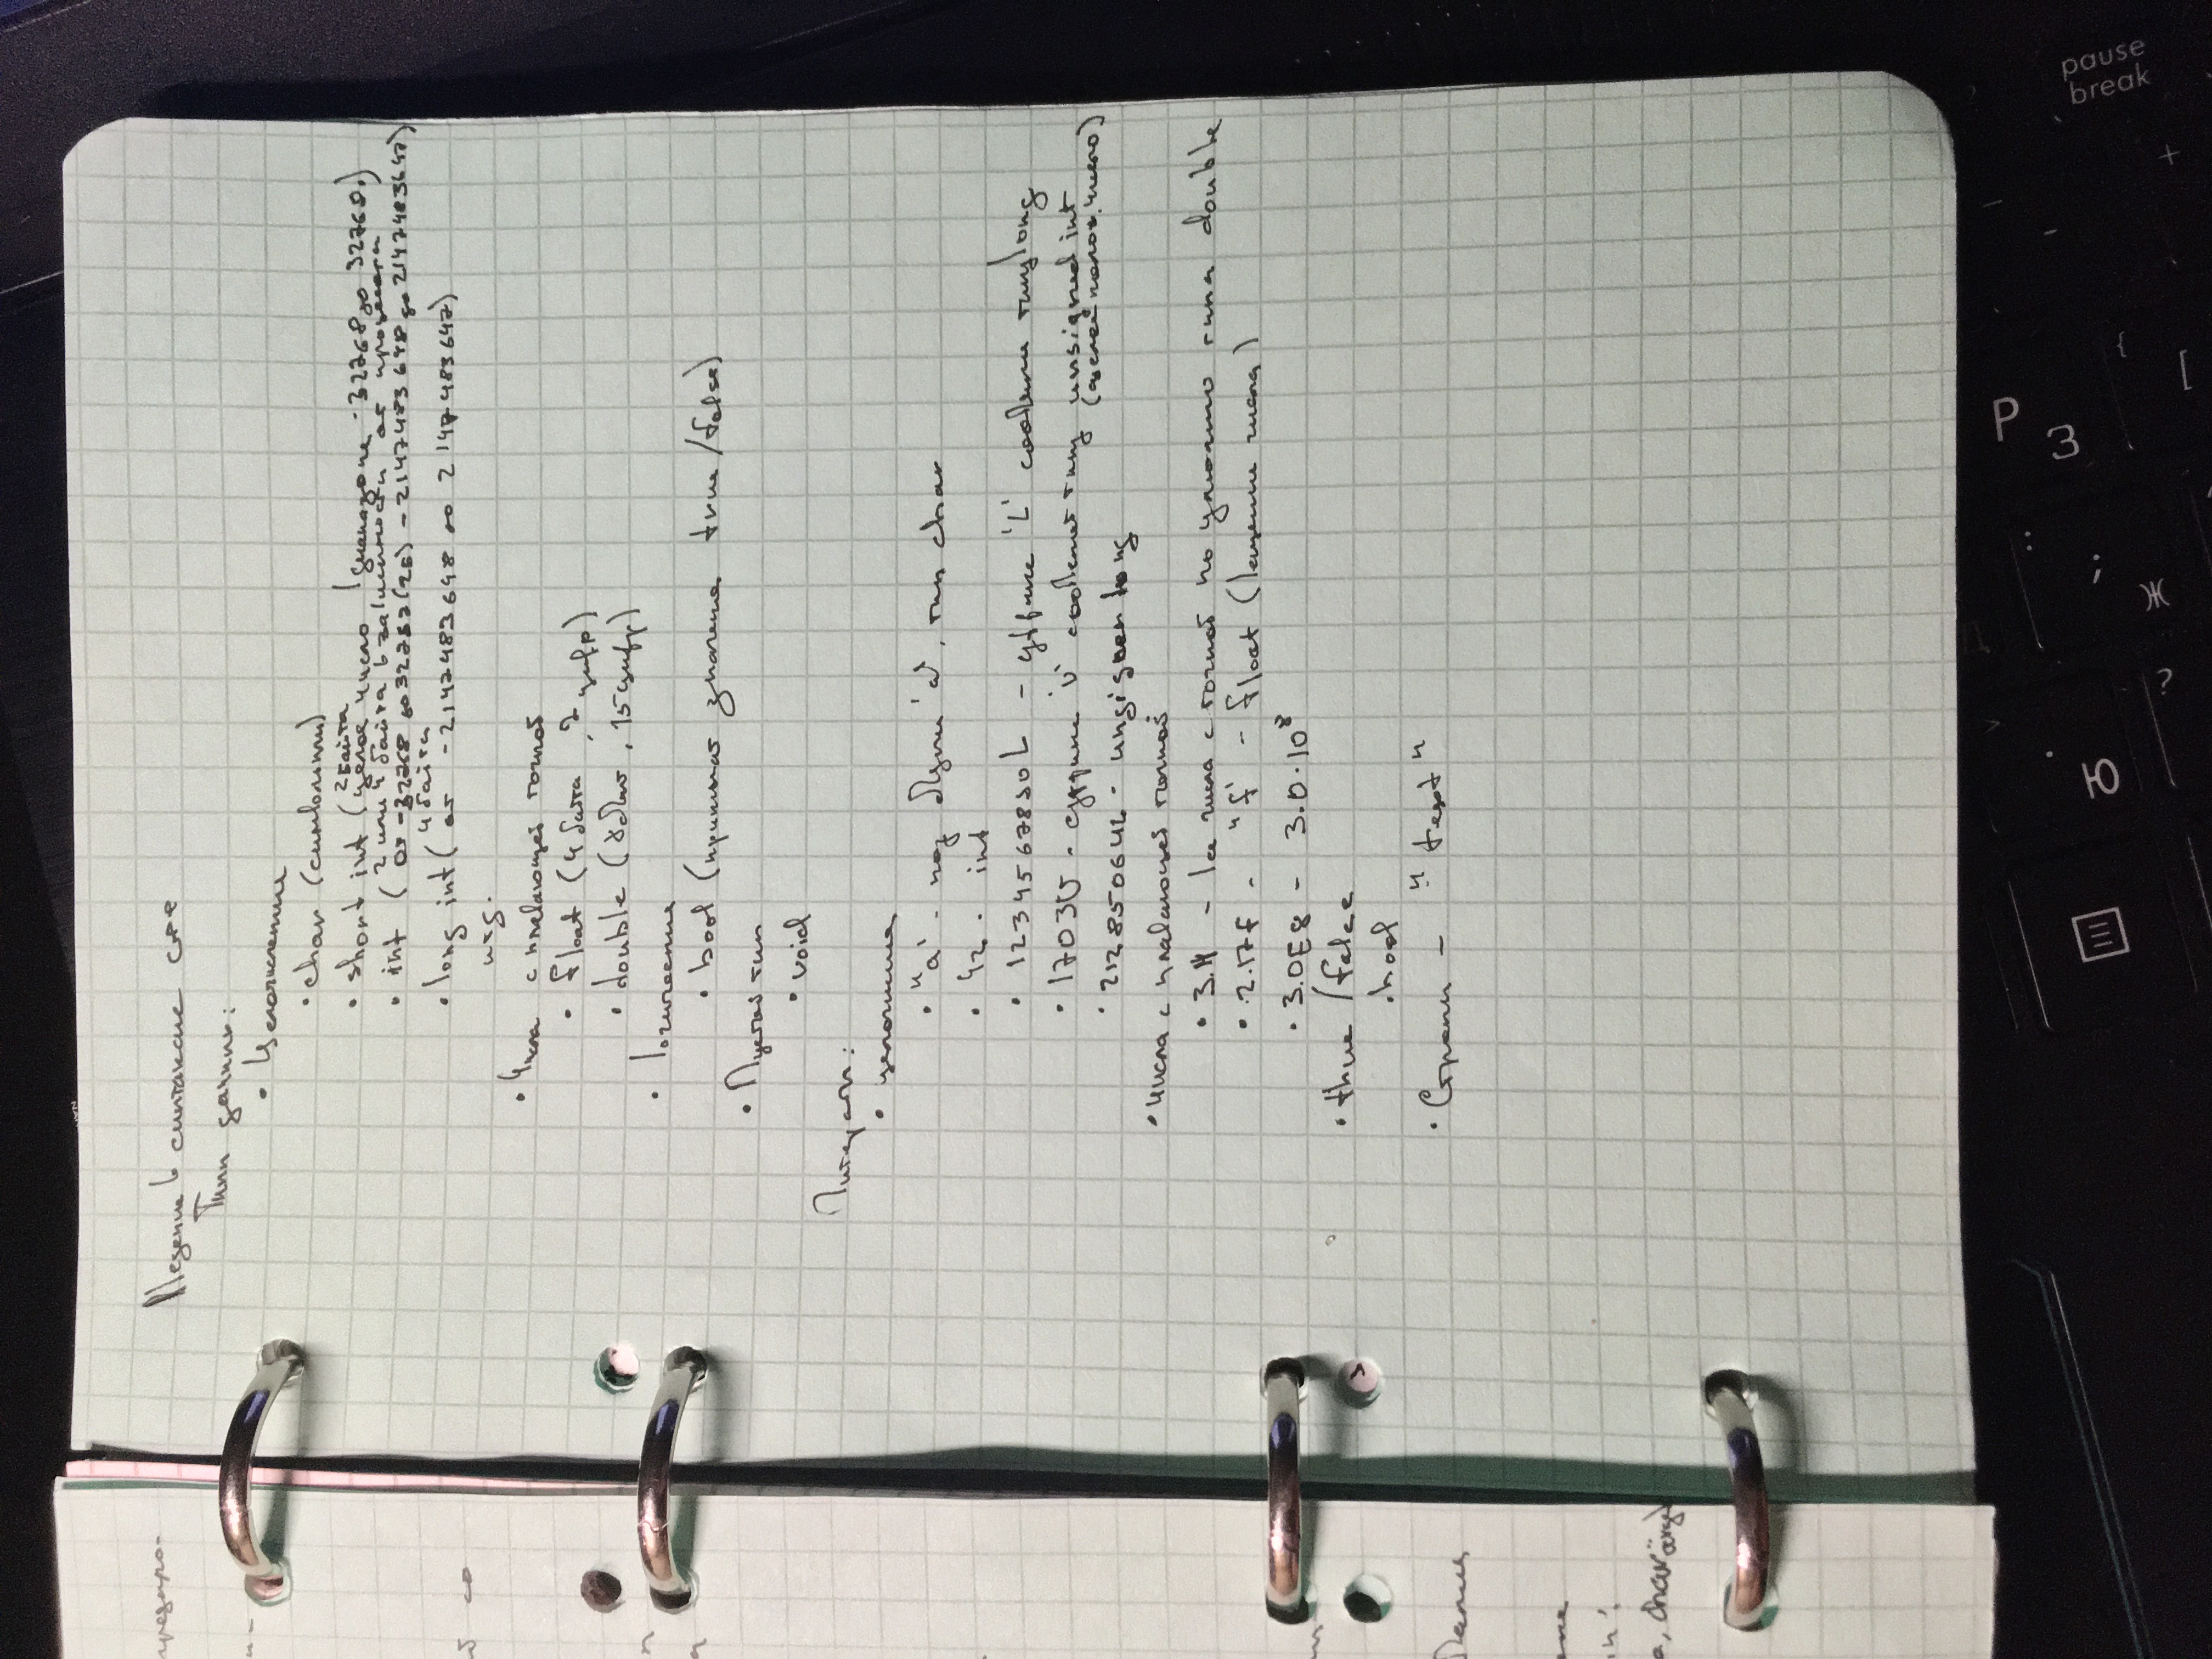 предпро-
Введение в синтаксис cpp
Типы данных:
• Целочисленные
• char (символьный)
2 байта
• short int (целое число в диапазоне -32768 до 32768.)
2 или 4 байта в зависимости от процессора
• int ( от -32768 до 32767(2б) -2147483648 до 2147483647)
4 байта
• long int( от -2147483648 до 2147483647)
итд.
• Числа с плавающей точкой
• float (4 байта, 7 цифр)
• double (8 байт, 15 цифр)
• логические
• bool (принимает значения true/false)
• Пустой тип
• void
Литералы:
• целочисленные
• "a' - код буквы 'a', тип char
• 42 - int
• 1234567890L - суффикс 'L' соответствует типу long
• 1703U - суффикс 'U' соответствует типу unsigned int
(целое полож. число)
• 2128506UL - unsigned long
• Числа с плавающей точкой
• 3.14 - все числа с точкой по умолчанию типа double
• 2.17f - "f' - float (вещественные числа)
• 3.0E8 - 3.0·10⁸
• true /false
.bool
• Строки - "text"
со
char
P
З
Ю
Ж
pause
break